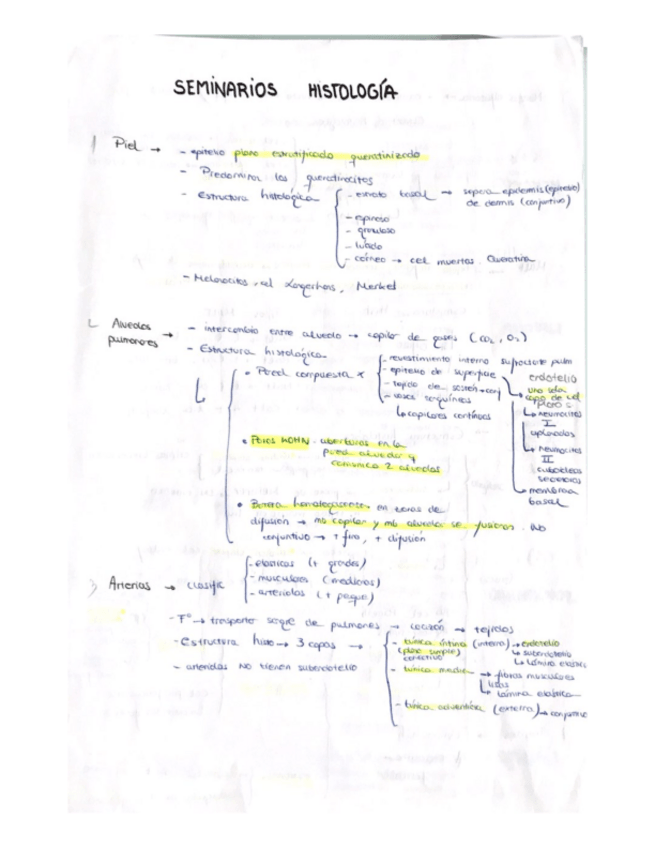 SEMINARIOS HISTOLOGÍA
Piel → - epitelio plano estratificado queratinizado
- Predominan los queratinocitos
- Estructura histológica
- estrato basal → separa epidermis (epitelio)
de dermis (conjuntivo)
- espinoso
- granuloso
- lucido
- córneo → cel muertas. Queratina
- Melanocitos, cel Langerhans, Merkel
Alveolos
pulmonares → - intercambio entre alveolo → capilar de gases (CO2, O2)
- Estructura histológica
• Pared compuesta x
- revestimiento interno surfactante pulm
- epitelio de superficie
- tejido de sostén → conj
- vasos sanguíneos
↳ capilares continuos
endotelio
una sola
capa de cel
plano s.
↳ neumocitos
I
aplanados
↳ neumocitos
II
cuboideos
secretores
→ membrana
basal
• Poros KOHN. aberturas en la
pared alveolar y
comunica 2 alveolos
• Barrera hematogaseosa en zonas de
difusión → mb capilar y mb alveolar se fusionan. No
conjuntivo → + fino, + difusión
Arterias → clasific
- elasticas (+ grandes)
- musculares (medianas)
- arteriolas (+ pequeñ)
- Fº → transporte sangre de pulmones → corazón → tejidos
- Estructura histo → 3 capas →
- arteriolas NO tienen subendotelio
- túnica íntima (interna) → endotelio
(plano simple)
conectivo
↳ subendotelio
↳ Lámina elástica
- túnica media → fibras musculares
lisas
↳ lámina elástica
- túnica adventicia (externa) → conjuntivo